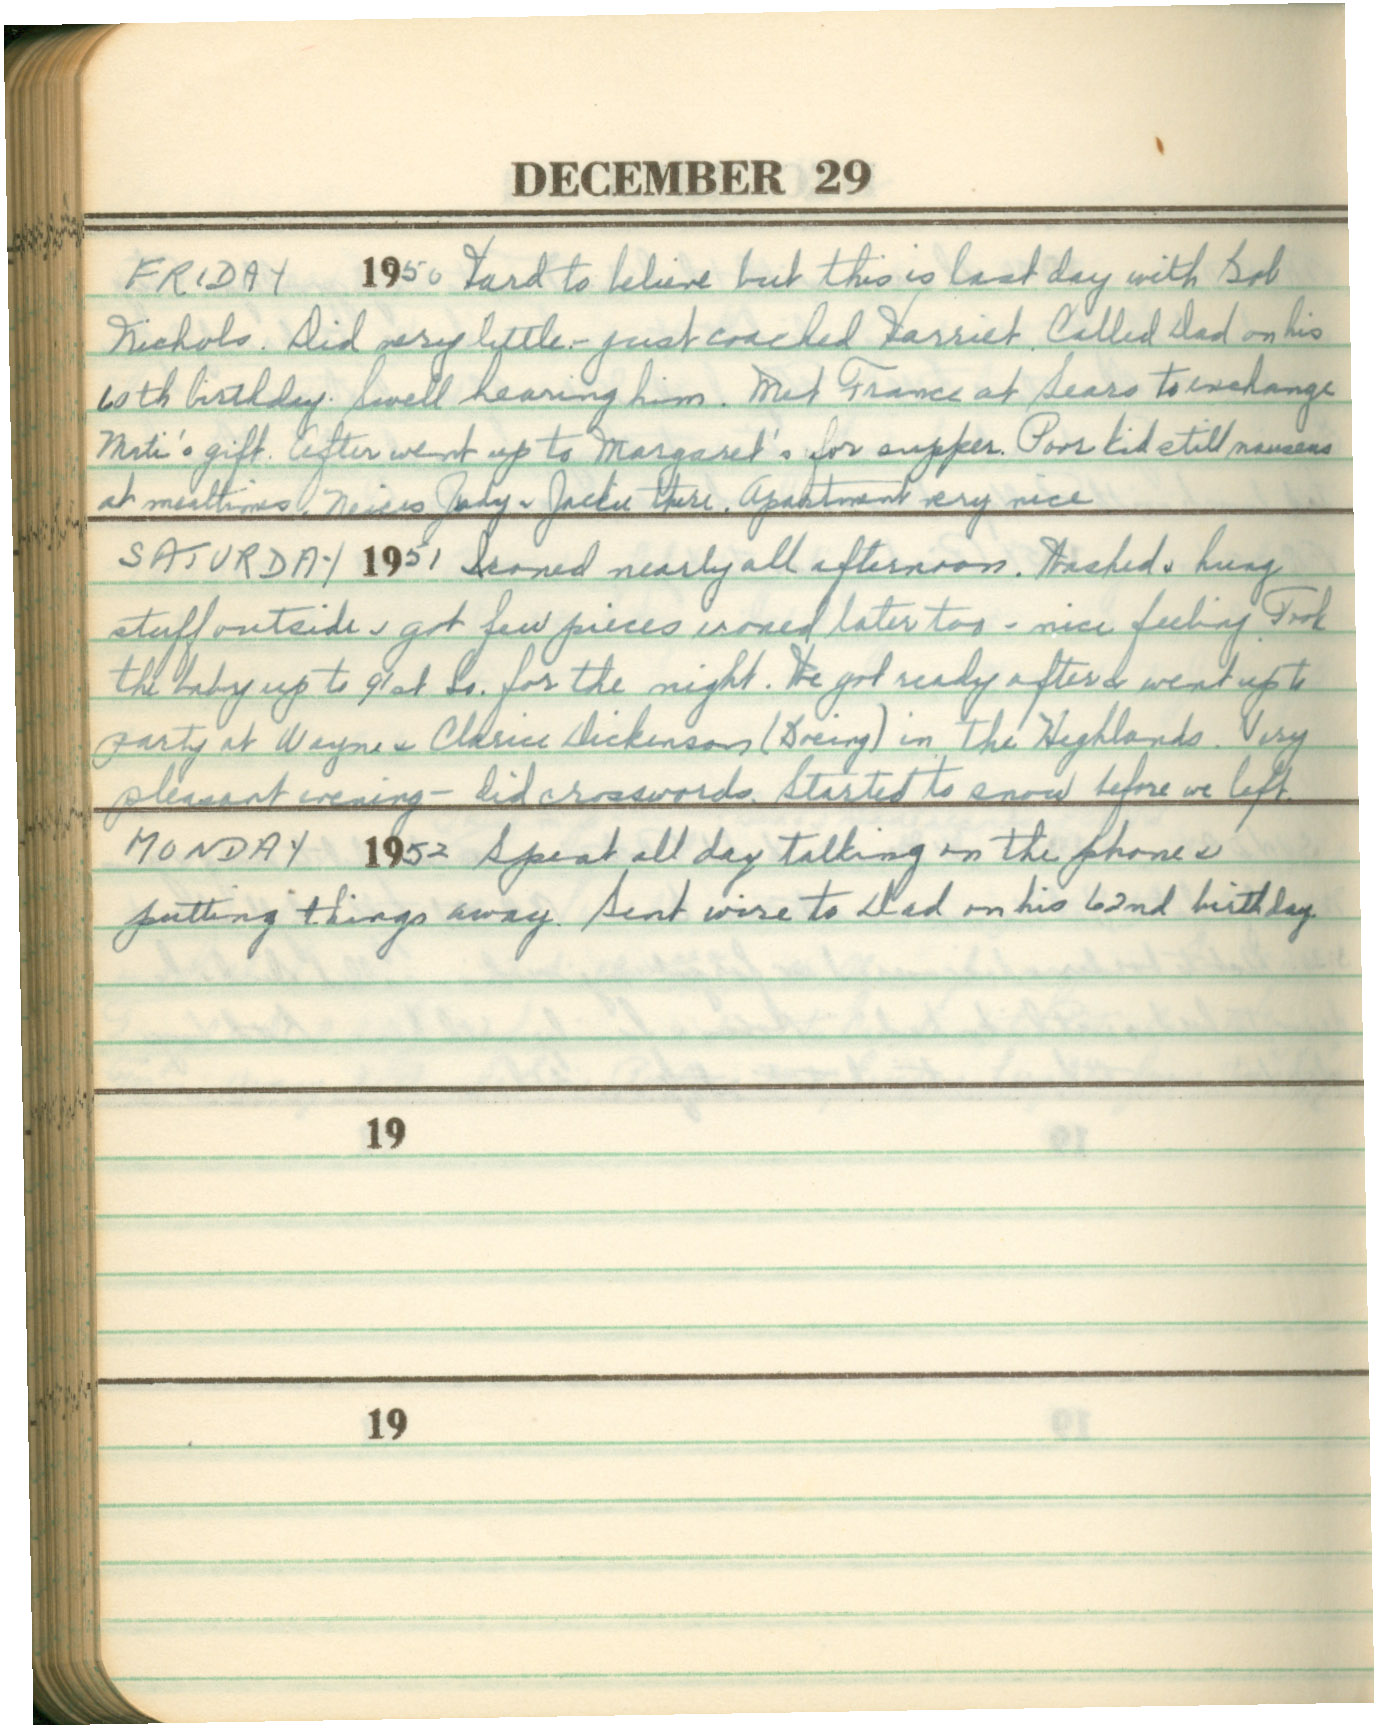 DECEMBER 29
FRIDAY 1950 Hard to believe but this is last day with Bob
Nichols. Did very little - just coached Harriet. Called Dad on his
60th birthday. Swell hearing him. Met France at Sears to exchange
gift. After went up to Margaret's for supper. Poor kid still nauseas
at mealtimes. Neices Judy & Jackie there. Apartment very nice
SATURDAY 1951 Ironed nearly all afternoon. Washed & hung
stuff outside & got few pieces ironed later too - nice feeling. Took
the baby up to 91st So. for the night. We got ready after & went up to
party at Wayne & Clarice Dickenson (Boeing) in The Highlands. Very
pleasant evening - did crosswords. Started to snow before we left.
MONDAY 1952 Spent all day talking on the phone &
putting things away. Sent wire to Dad on his 62nd birthday.
19
19